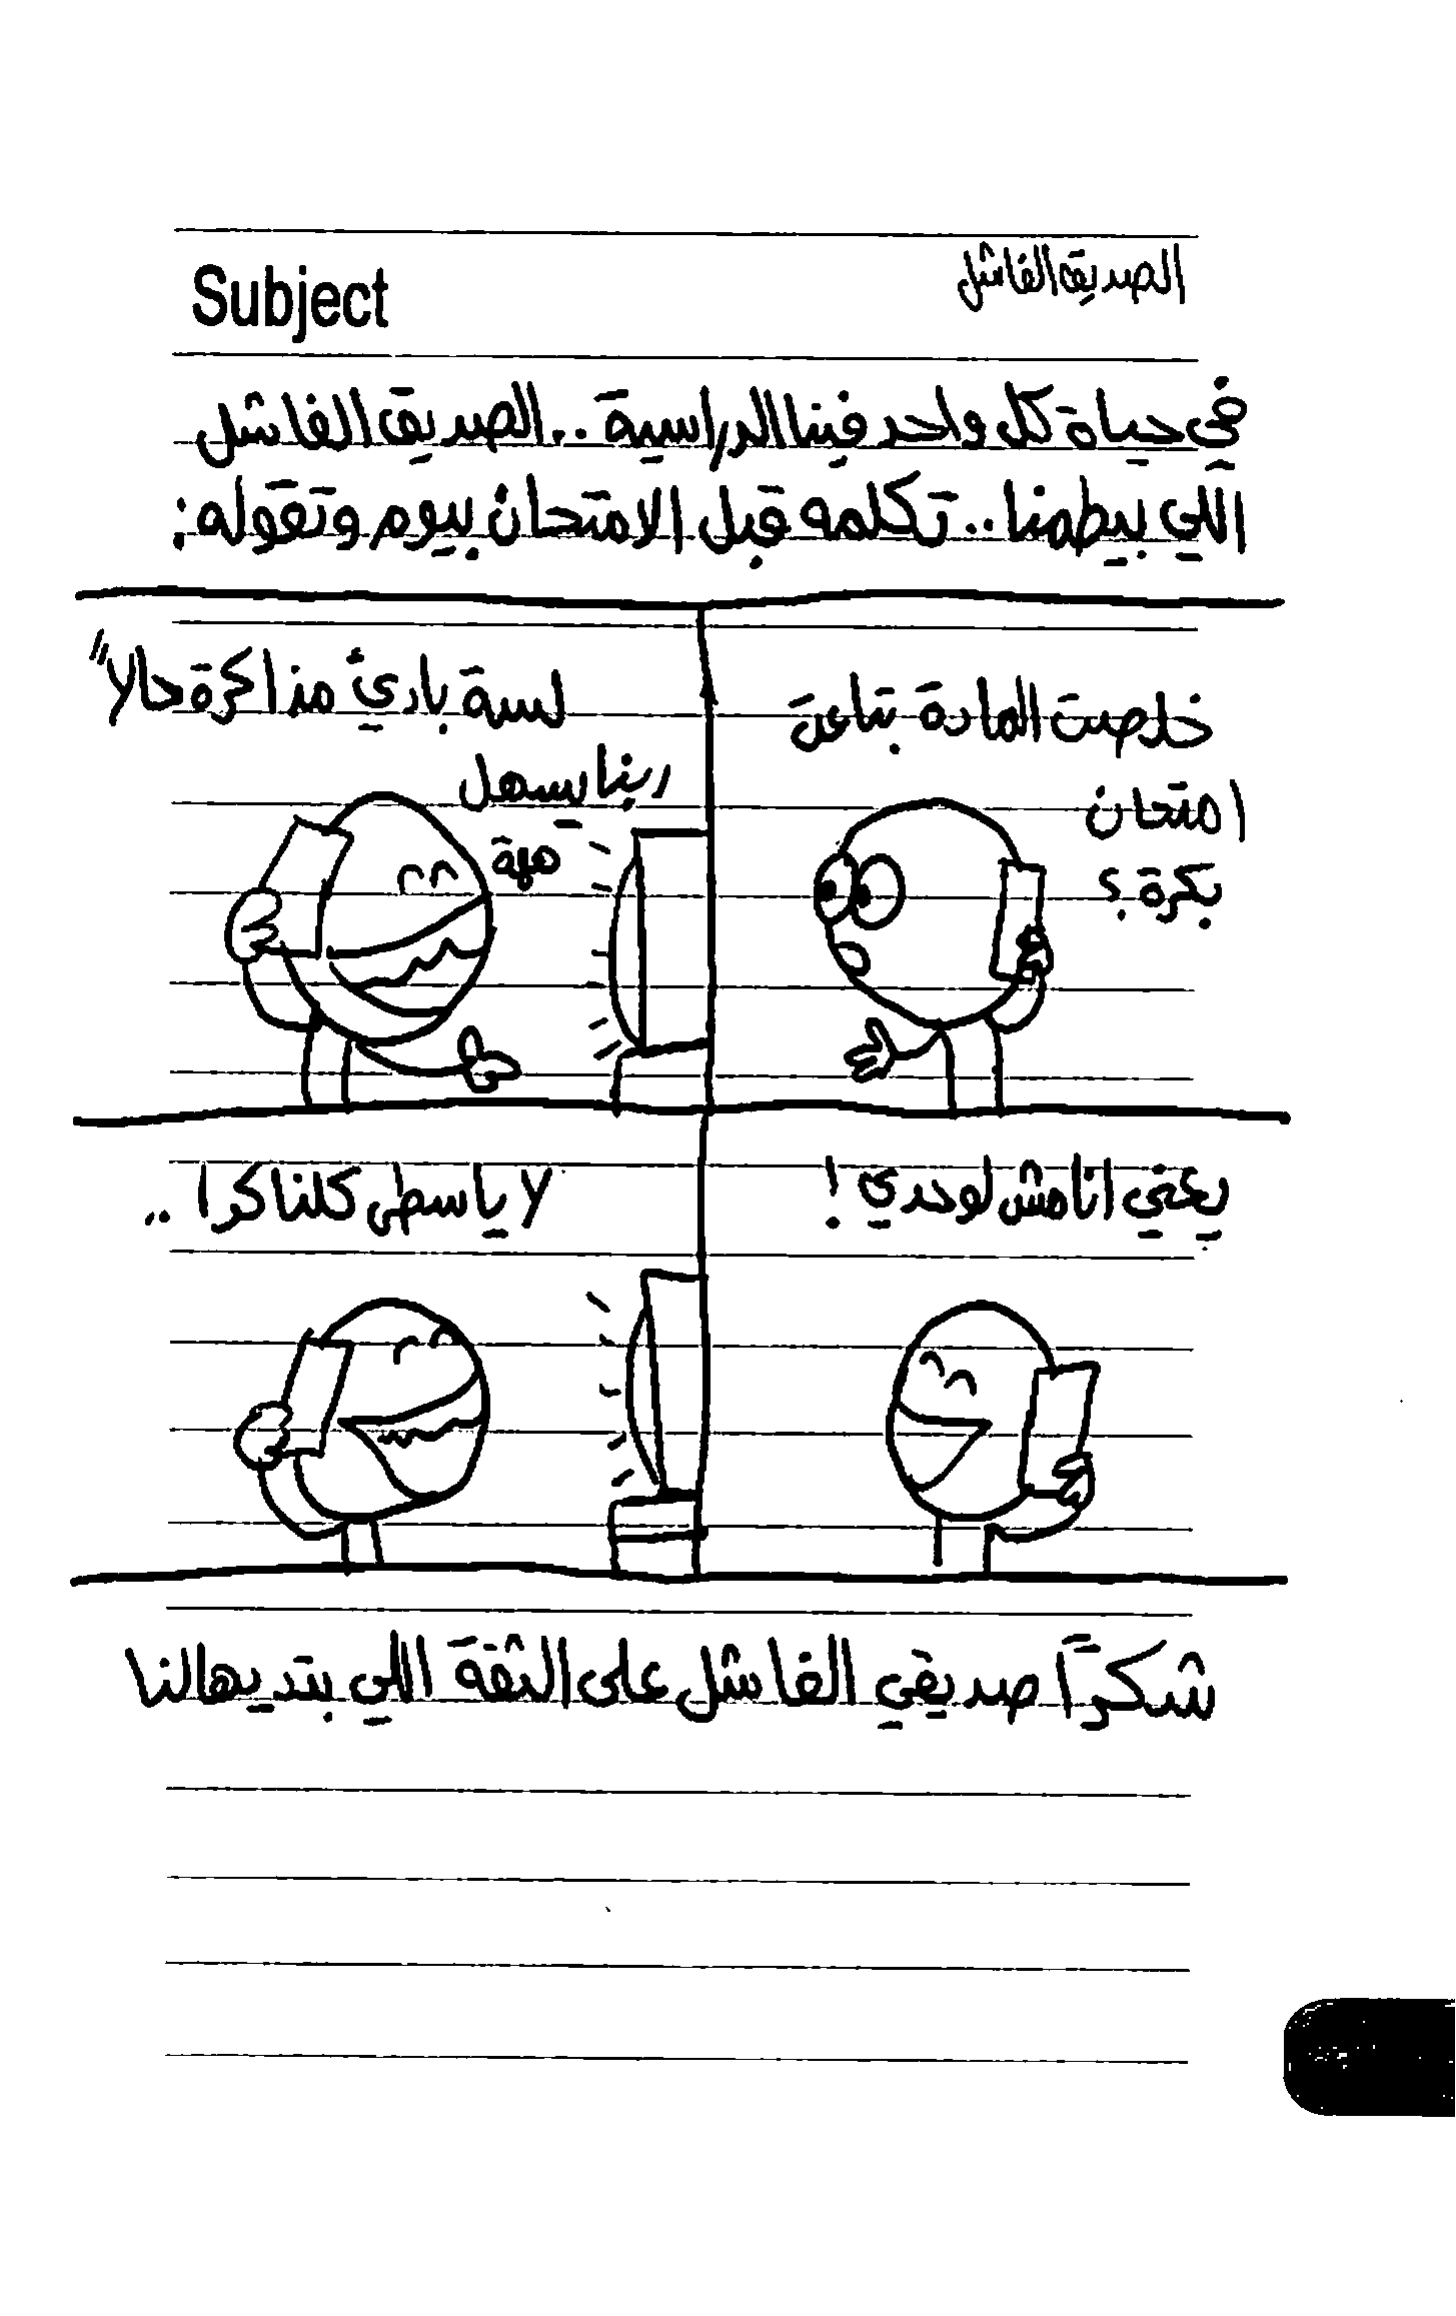 Subject
الصديق الفاشل
في حياة كل واحد فينا الدراسية .. الصديق الفاشل
اللي بيطمنا .. تكلمه قبل الامتحان بيوم وتقوله :
خلصت المادة بتاعت
امتحان
بكرة ؟
لسة بادئ مذاكرة حالاً
ربنا يسهل
يعني انا مش لوحدي !
لا ياسطى كلنا كدا ..
شكرًا صديقي الفاشل على الثقة اللي بتديهالنا